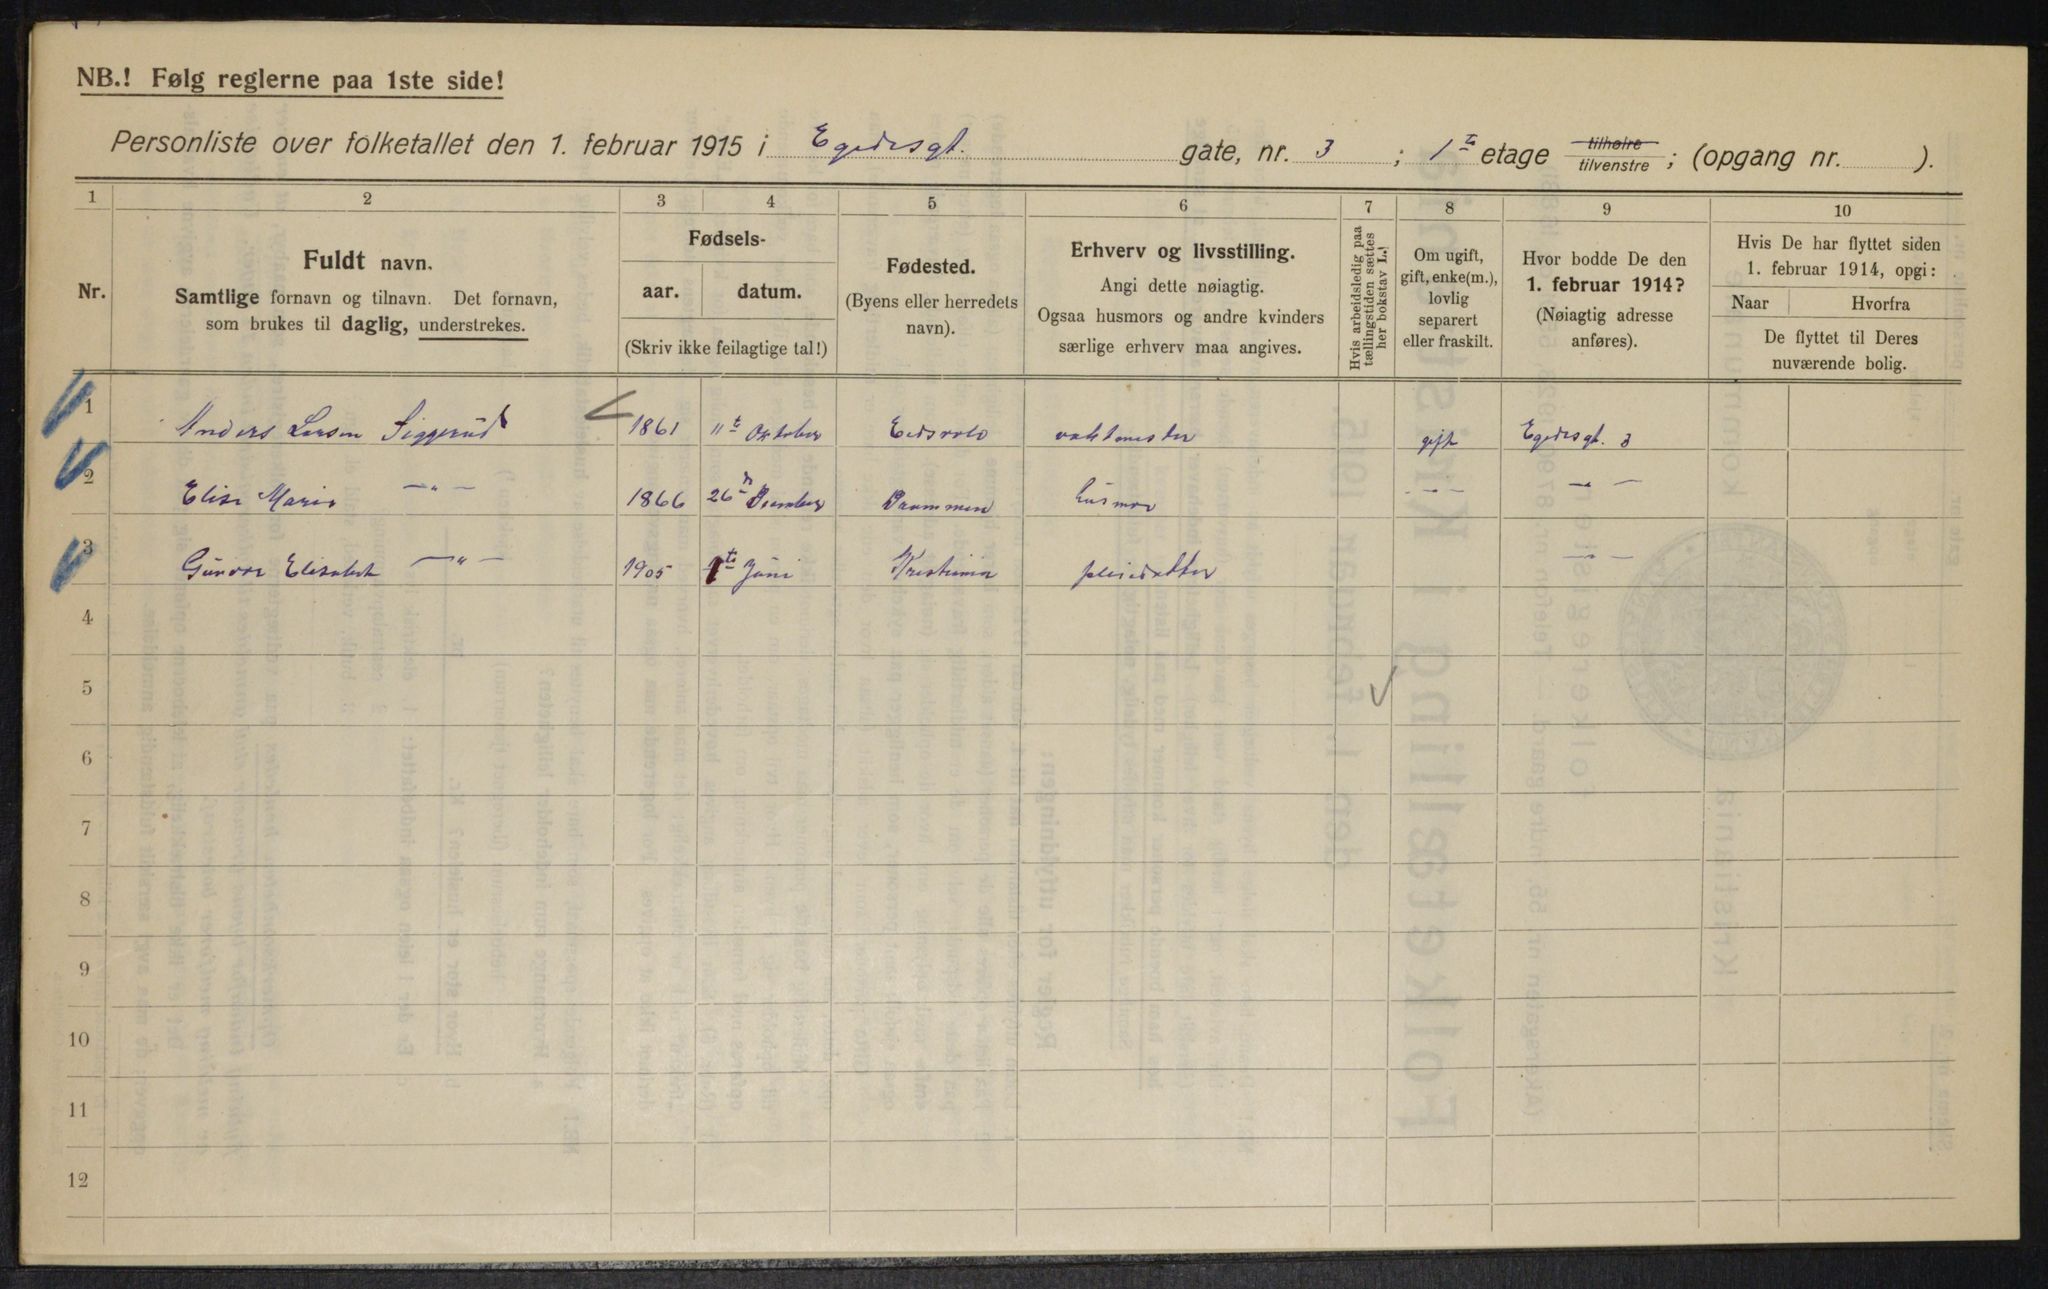 NB.! Følg reglerne paa 1ste side!
Personliste over folketallet den 1. februar 1915 i Egedesgt. gate, nr. 3 ; 1ste etage tilhøire tilvenstre ; (opgang nr. ).
1 2 3 4 5 6 7 8 9 10
Nr.
Fuldt navn.
Samtlige fornavn og tilnavn. Det fornavn,
som brukes til daglig, understrekes.
Fødsels-
aar. datum.
(Skriv ikke feilagtige tal!)
Fødested.
(Byens eller herredets
navn).
Erhverv og livsstilling.
Angi dette nøiagtig.
Ogsaa husmors og andre kvinders
særlige erhverv maa angives.
Hvis arbeidsledig paa
tællingstiden sættes
her bokstav L.!
Om ugift,
gift, enke(m.),
lovlig
separert
eller fraskilt.
Hvor bodde De den
1. februar 1914?
(Nøiagtig adresse
anføres).
Hvis De har flyttet siden
1. februar 1914, opgi:
Naar Hvorfra
De flyttet til Deres
nuværende bolig.
1 Anders Larsen Siggerud 1861 11te Oktober Eidsvold vaktmester gift Egedesgt. 3
2 Elise Marie —"— 1866 26n Desember Drammen husmor —"— —"—
3 Gunvor Elisabet —"— 1905 1ste Juni Kristiania pleiedatter —"—
4
5
6
7
8
9
10
11
12